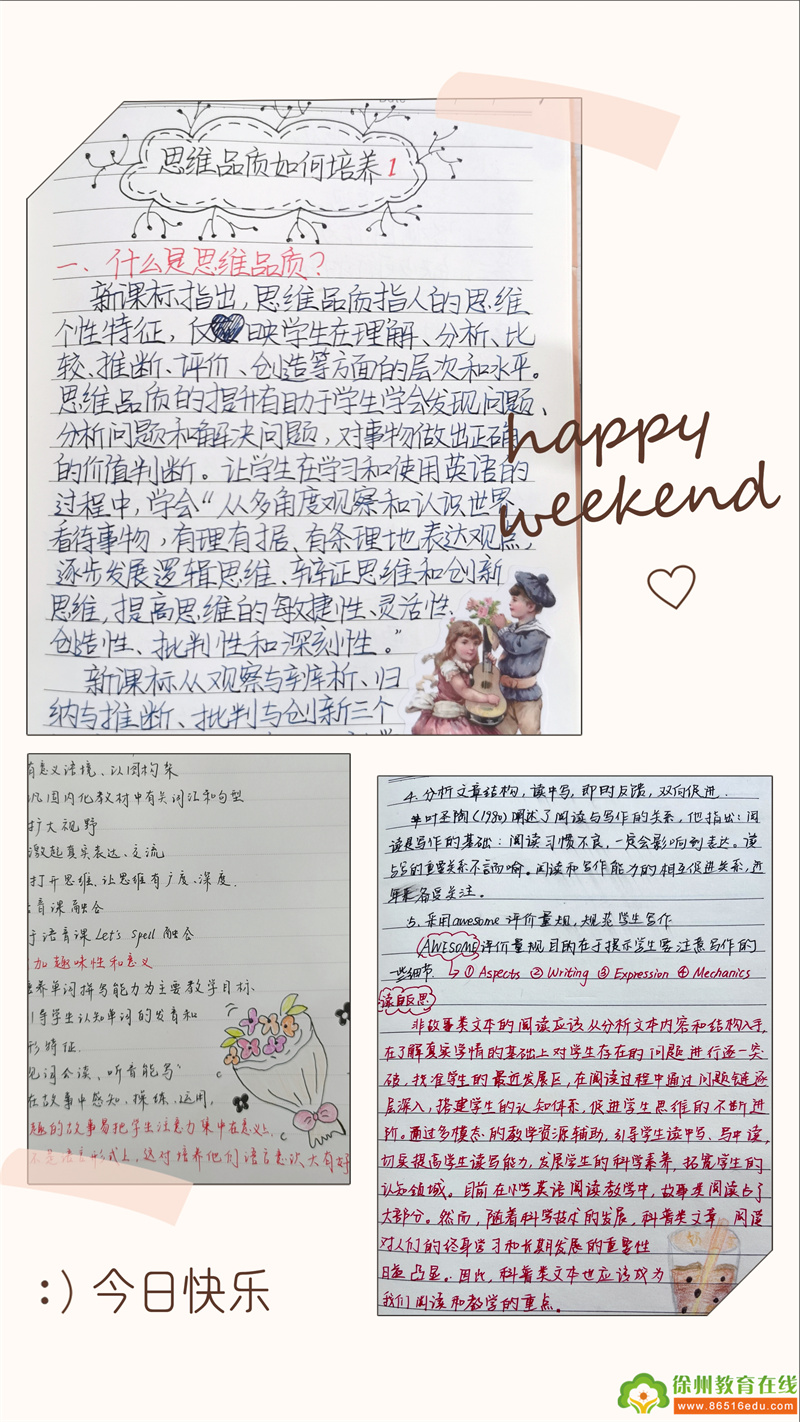 思维品质如何培养1
一、什么是思维品质?
新课标指出,思维品质指人的思维
个性特征,反映学生在理解、分析、比
较、推断、评价、创造等方面的层次和水平。
思维品质的提升有助于学生学会发现问题、
分析问题和解决问题,对事物做出正确
的价值判断。让学生在学习和使用英语的
过程中,学会“从多角度观察和认识世界
看待事物,有理有据、有条理地表达观点,
逐步发展逻辑思维、辩证思维和创新
思维,提高思维的敏捷性、灵活性、
创造性、批判性和深刻性。”
新课标从观察与辨析、归
纳与推断、批判与创新三个
happy
weekend
有意义语境、以图构架
巩固内化教材中有关词汇和句型
扩大视野
激起真实表达、交流
打开思维、让思维有广度、深度.
音课融合
于语音课Let's Spell融合
加趣味性和意义
培养单词拼写能力为主要教学目标.
引导学生认知单词的发音和
形特征.
见词会读、听音能写”
在故事中感知、操练、运用.
趣的故事易把学生注意力集中在意义上.
不是语言形式上,这对培养他们语言意识大有好
4. 分析文章结构,读中写,即时反馈,双向促进.
叶圣陶(1980)阐述了阅读与写作的关系,他指出:阅
读是写作的基础:阅读习惯不良,一定会影响到表达。读
与写的重要关系不言而喻。阅读和写作能力的相互促进关系,近
年来备受关注。
5. 采用awesome评价量规,规范学生写作
AWESOME评价量规目的在于提示学生要注意写作的
一些细节. ① Aspects ② Writing ③ Expression ④ Mechanics
读自反思
非故事类文本的阅读应该从分析文本内容和结构入手,
在了解真实学情的基础上对学生存在的问题进行逐一突
破,找准学生的最近发展区,在阅读过程中通过问题链逐
层深入,搭建学生的认知体系,促进学生思维的不断进
阶。通过多模态的教学资源辅助,引导学生读中写、写中读,
切实提高学生读写能力,发展学生的科学素养,拓宽学生的
认知领域。目前在小学英语阅读教学中,故事类阅读占了
大部分。然而,随着科学技术的发展,科普类文章阅读
对人们的终身学习和长期发展的重要性
日益凸显。因此,科普类文本也应该成为
我们阅读和教学的重点。
:) 今日快乐
徐州教育在线
www.86516edu.com